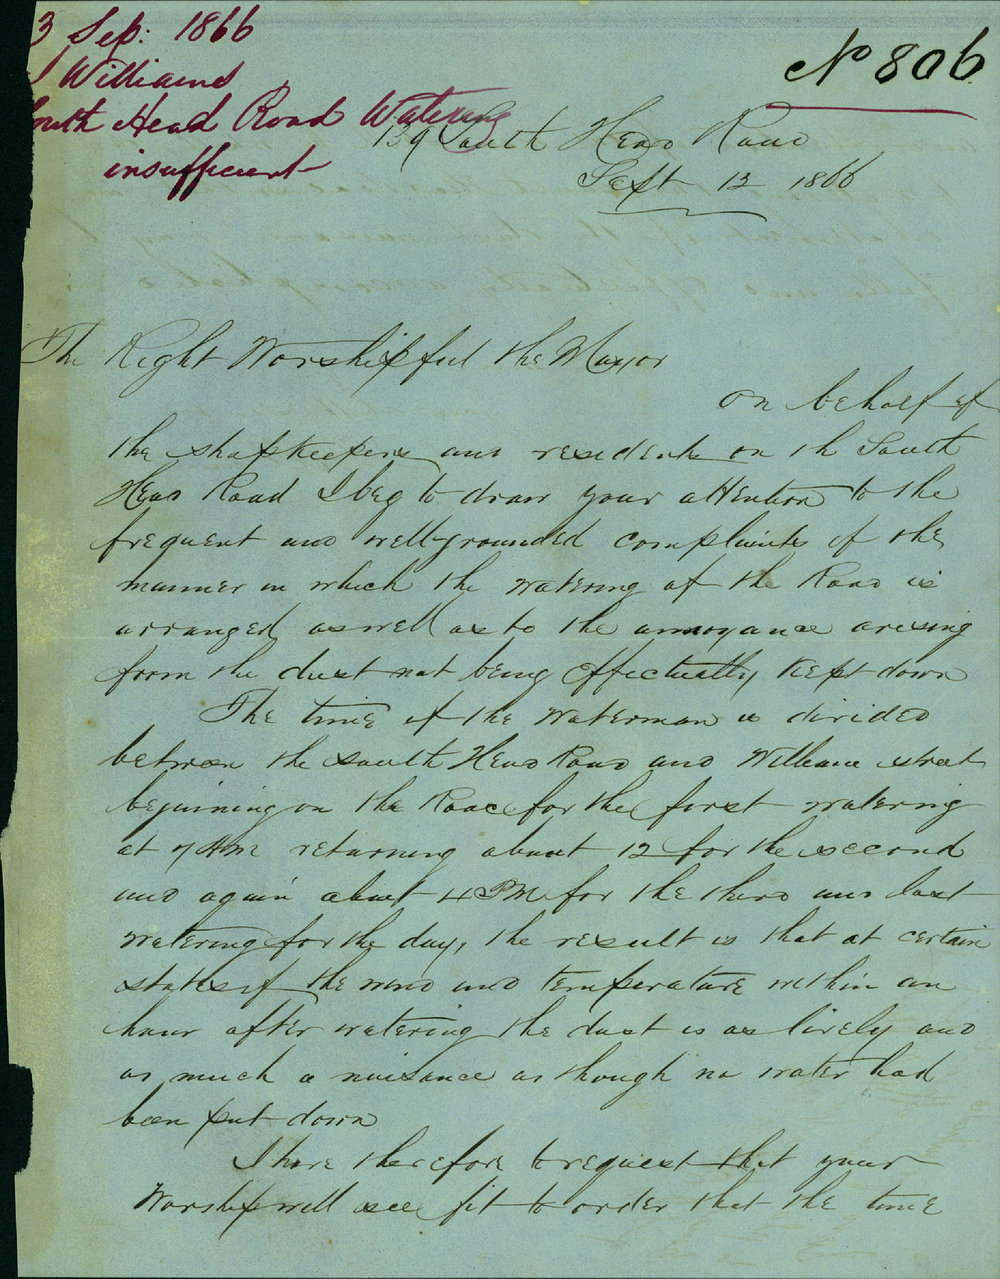 3 Sep: 1866
J Williams
South Head Road Watering
insufficient
No 806
139 South Head Road
Sept 12 1866
The Right Worshipful the Mayor
On behalf of
the shopkeepers and residents on th South
Head Road I beg to draw your attention to the
frequent and well-grounded complaints of the
manner in which the watering of the Road is
arranged as well as to the annoyance arising
from the dust not being effectually kept down
The time of the Waterman is divided
between the South Head Road and William street
beginning on the Road for the first watering
at 7 AM returning about 12 for the second
and again about 4 PM for the third and last
watering for the day, the result is that at certain
states of the wind and temperature within an
hour after watering the dust is as lively and
as much a nuisance as though no water had
been put down
I have therefore to request that your
Worship will see fit to order that the time